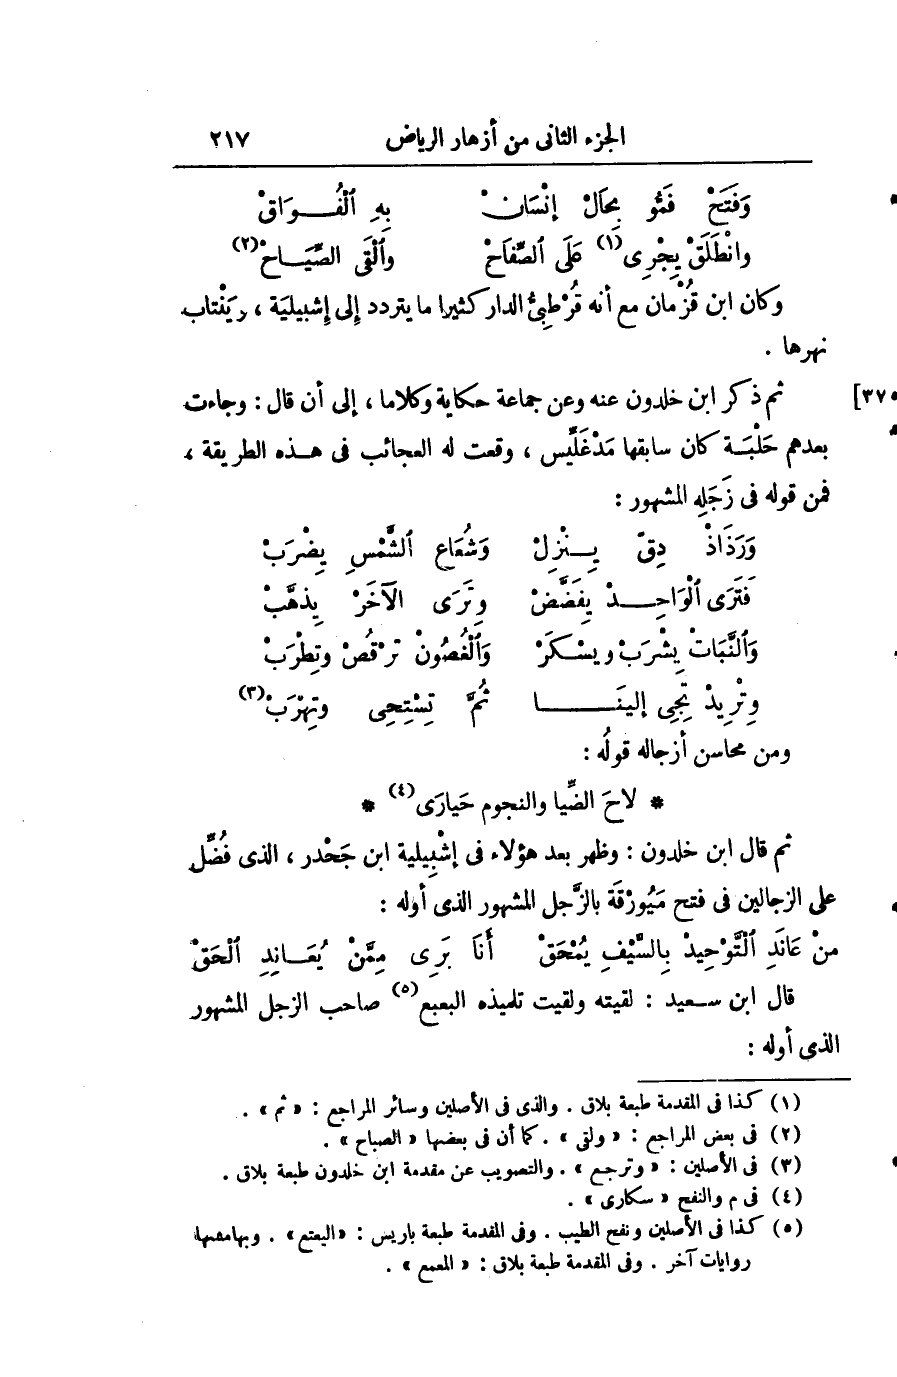 الجزء الثانى من أزهار الرياض ٢١٧
وَفَتَحْ فَمُّو بِحَالْ إِنْسَانْ بِهِ ٱلْفُـــوَاقْ
وانْطَلَقْ يِجْرِى(١) عَلَى ٱلصِّفَاحْ وٱلْقَى الصِّيَــاحْ(٢)
وكان ابن قُزْمان مع أنه قُرْطبىُّ الدار كثيرا ما يتردد إلى إشبيليَة ، ويَنْتاب
نهرها .
٣٧٠]
ثم ذكر ابن خلدون عنه وعن جماعة حكاية وكلاما ، إلى أن قال : وجاءت
بعدهم حَلْبَــة كان سابقها مَدْغَلِّيس ، وقعت له العجائب فى هــذه الطريقة ،
فمن قوله فى زَجَله المشهور :
وَرَذَاذْ دِقّ يِــنْزِلْ وَشُعَاعِ ٱلشَّمْسِ يِضْرَبْ
فَتَرَى ٱلْوَاحِـــدْ يِفَضَّضْ وتَرَى الآخَرْ يِذهَّبْ
وَٱلنَّبَاتْ يِشْرَبْ ويسْكَرْ وَٱلْغُصُونْ ترْقُصْ وتِطْرَبْ
وتْرِيدْ تِجِى إلينَــــــا ثُمَّ تِسْتِحِى وتِهْرَبْ(٣)
ومن محاسن أزجاله قولُه :
* لاحَ الضِّيا والنجوم حَيارَى(٤) *
ثم قال ابن خلدون : وظهر بعد هؤلاء فى إشْبِيلية ابن جَحْدر ، الذى فُضِّل
على الزجالين فى فتح مَيُورْقَة بالزَّجل المشهور الذى أوله :
منْ عَانَدِ ٱلتَّوْحِيدْ بِالسَّيْفِ يُمْحَقْ أَنَا بَرَى مِمَّنْ يُعَــانِدِ ٱلْحَقْ
قال ابن ســعيد : لقيته ولقيت تلميذه البعبع(٥) صاحب الزجل المشهور
الذى أوله :
(١) كذا فى المقدمة طبعة بلاق . والذى فى الأصلين وسائر المراجع : « ثم » .
(٢) فى بعض المراجع : « ولقى » . كما أن فى بعضها « الصباح » .
(٣) فى الأصلين : « وترجع » . والتصويب عن مقدمة ابن خلدون طبعة بلاق .
(٤) فى م والنفح « سكارى » .
(٥) كذا فى الأصلين ونفح الطيب . وفى المقدمة طبعة باريس : «اليعتع» . وبهامشها
روايات آخر . وفى المقدمة طبعة بلاق : « المعمع » .